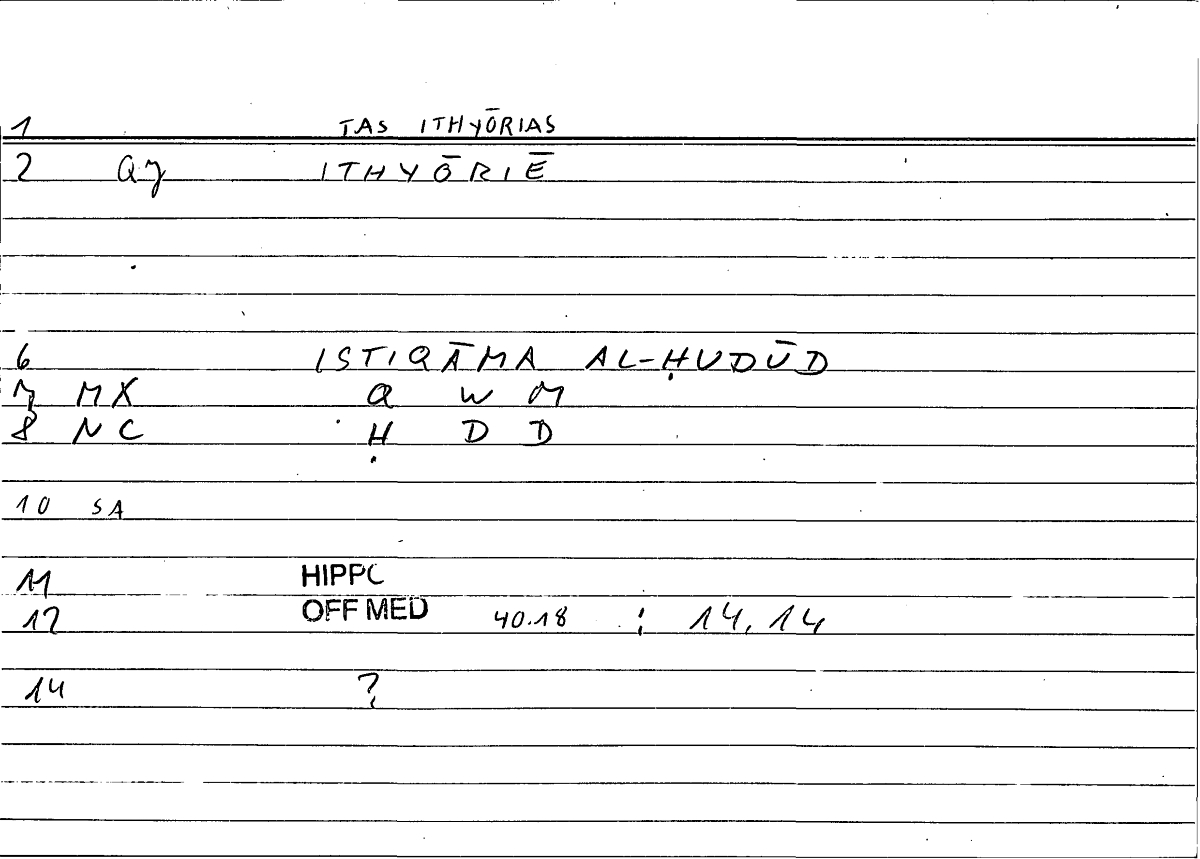 1 TAS ITHYŌRIAS
2 Q7 ITHYŌRIĒ
6 ISTIQĀMA AL-ḤUDŪD
7 MX Q W M
8 NC Ḥ D D
10 SA
11 HIPPC
12 OFF MED 40.18 : 14,14
14 ?